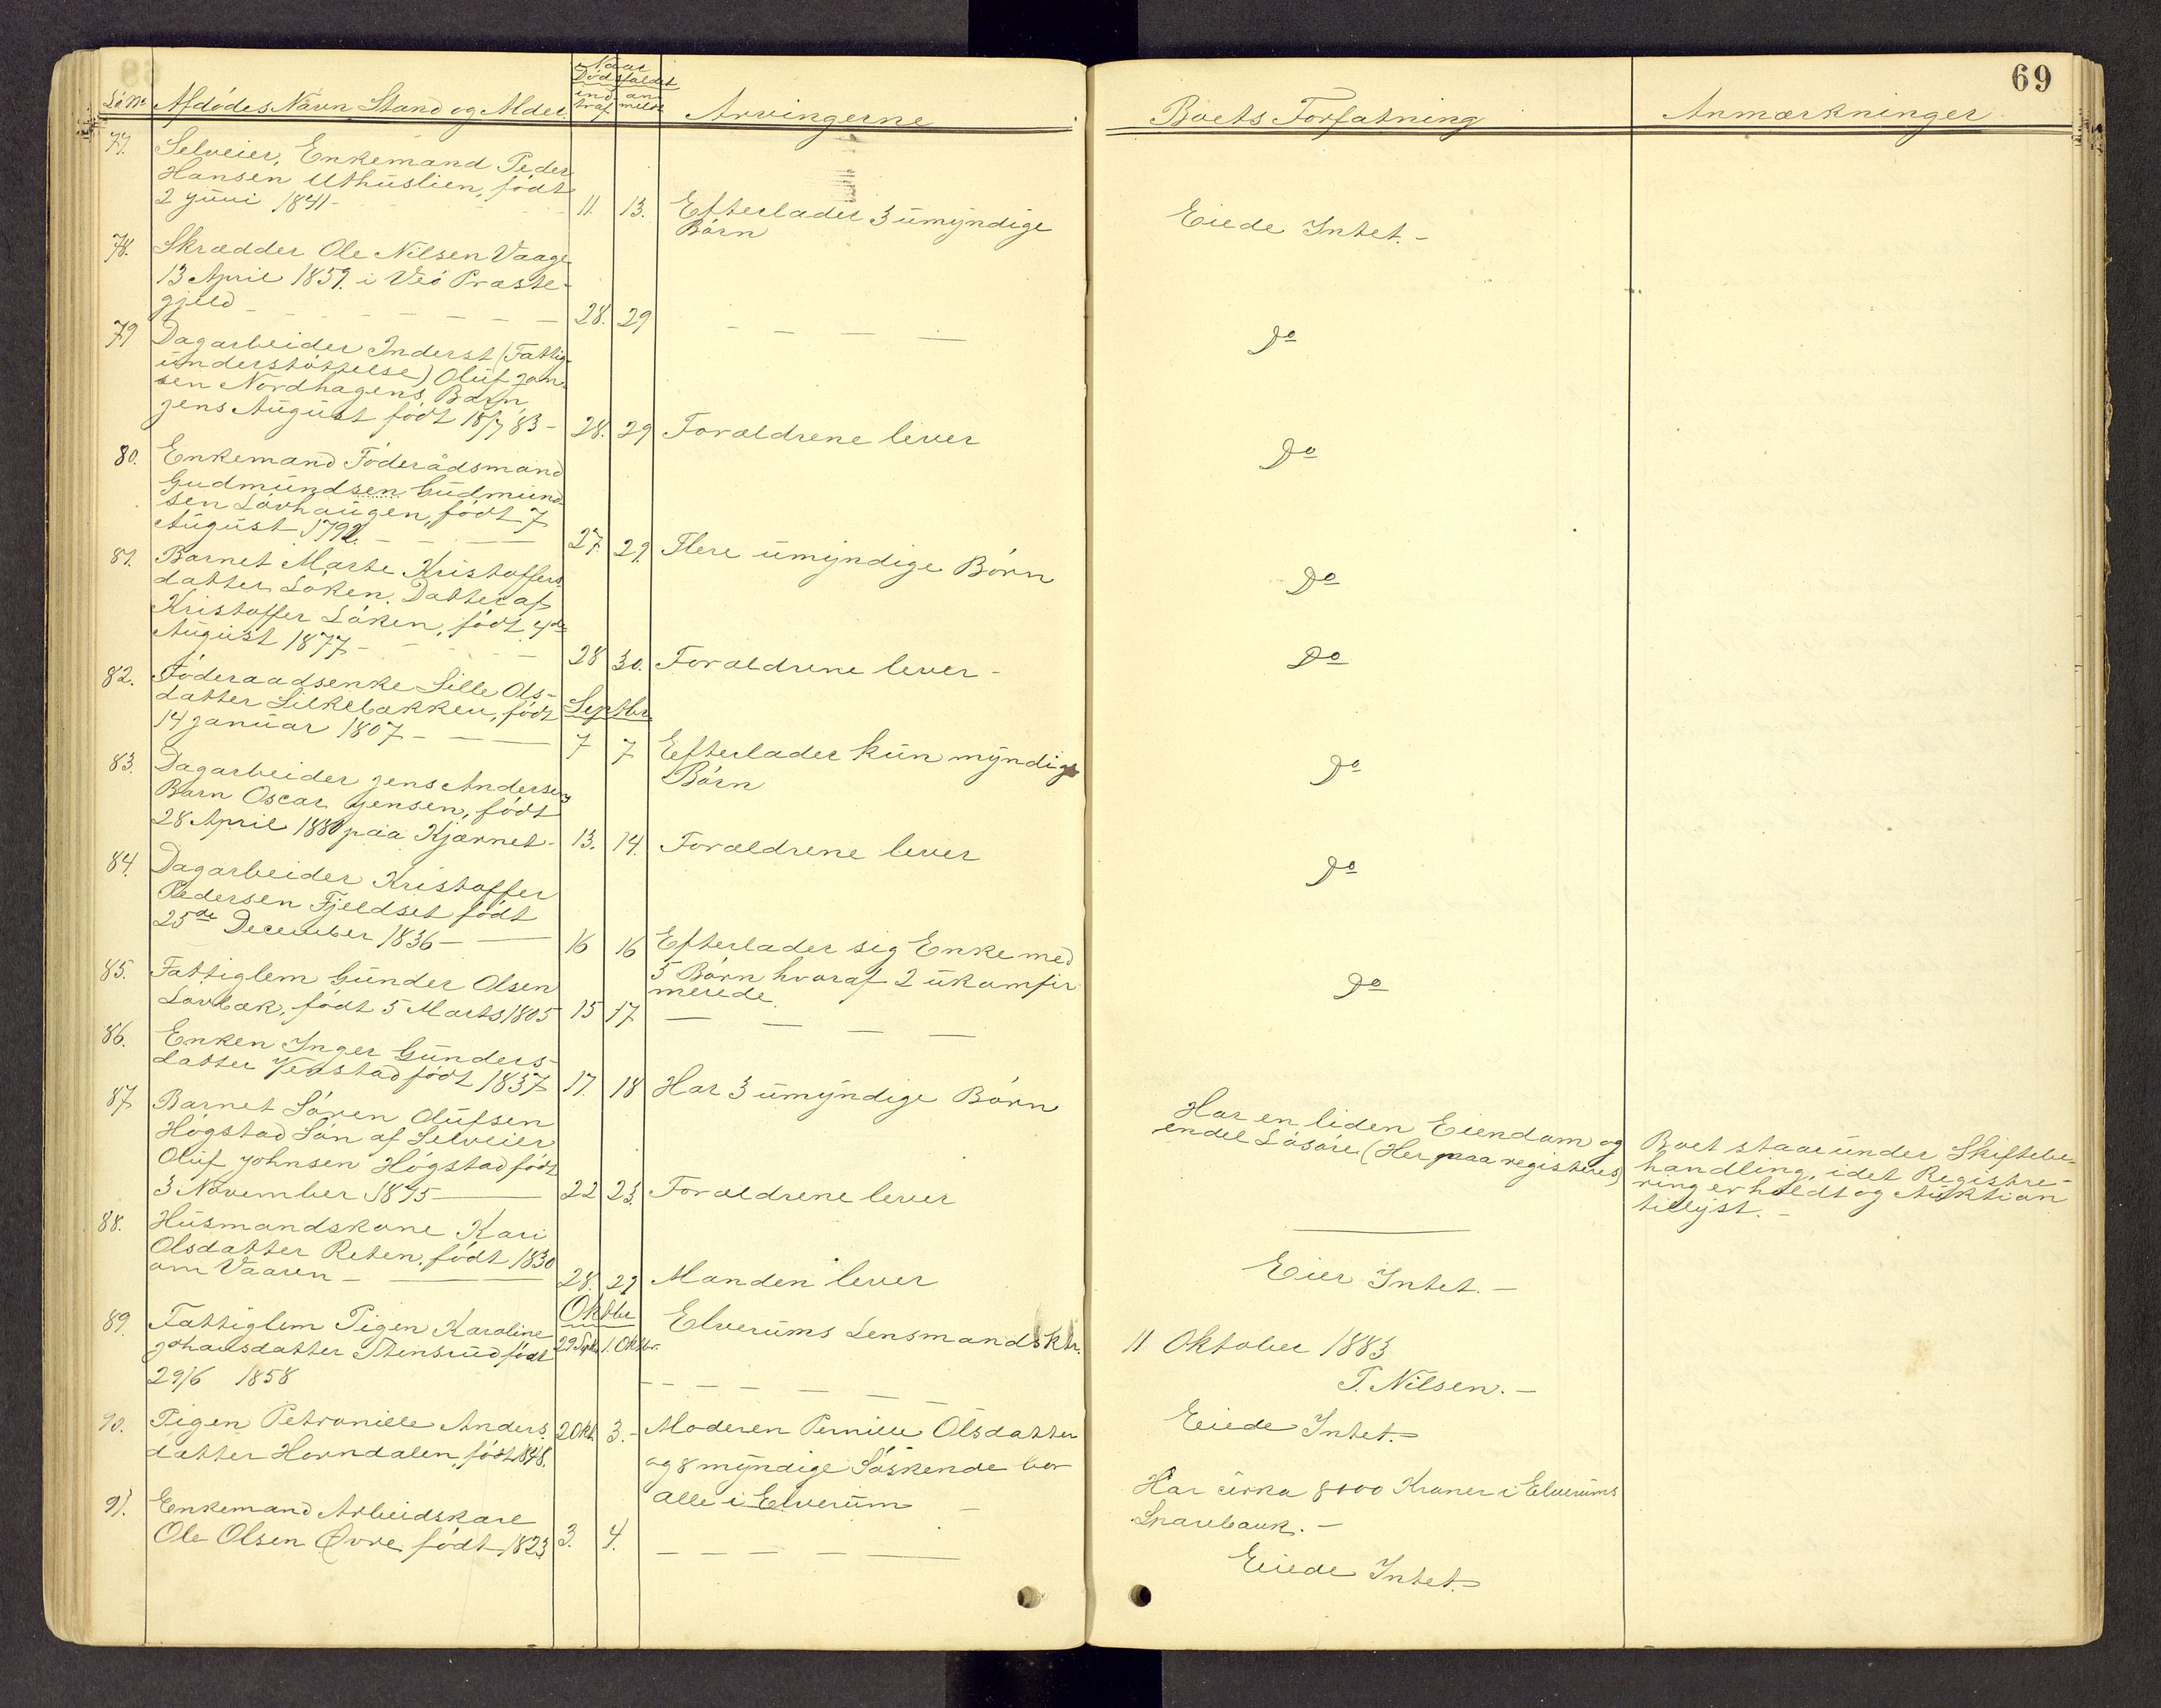 69
Lö No Afdödes Navn Stand og Alder. Naar Dödsfaldet ind traf an meldt Arvingerne Boets Forfatning Anmærkninger
77. Selveier, Enkemand Peder
Hansen Uthuslien, födt
2 Juni 1841 - 11. 13. Efterlader 3 umyndige
Börn
Eiede Intet. -
78. Skrædder Ole Nilsen Vaage
13 April 1859. i Veö Præste-
gjeld - 28. 29 - - - -
Do
79 Dagarbeider Inderst (Fattig-
understöttelse) Oluf Jan-
sen Nordhagens Barn
Jens August födt 18/7 83 - 28. 29 Forældrene lever
Do
80. Enkemand Föderådsmand
Gudmundsen Gudmund-
sen Lövhaugen, födt 7
August 1792. - 27. 29. Flere umyndige Börn
Do
81. Barnet Marte Kristoffers-
datter Löken. Datter af
Kristoffer Löken, födt 4de
August 1877 - 28 30. Forældrene lever -
Do
82. Föderaadsenke Sille Ols-
datter Silkebakken, födt Septbr
14 Januar 1807 - 7 7 Efterlader kun myndige
Börn
Do
83. Dagarbeider Jens Andersens
Barn Oscar Jensen, födt
28 April 1880 paa Kjærnet - 13. 14. Forældrene lever
Do
84. Dagarbeider Kristoffer
Pedersen Fjeldset födt
25de December 1836 - 16 16 Efterlader sig Enke med
5 Börn hvoraf 2 ukomfir
merede.
Do
85. Fattiglem Gunder Olsen
Lövbæk, födt 5 Marts 1805 15 17 - - - -
86. Enken Inger Gunders-
datter födt 1837 17. 18 Har 3 umyndige Börn
Har en liden Eiendom og
endel Lösöre (Her paa registeres)
Boet staar under Skiftebe-
handling, idet Registre-
ring er holdt og Auktion
tillyst. -
87 Barnet Sören Olufsen
Högstad Sön af Selveier
Oluf Johnsen Högstad födt
3 November 1875 - 22 23. Forældrene lever
88. Husmandskone Kari
Olsdatter Reten, födt 1830
om Vaaren - 28. 29 Manden lever
Eier Intet. -
Oktbr
89. Fattiglem Pigen Karoline 29 Septbr 1. Oktbr. Elverums Lensmandsktr. 11 Oktober 1883
Johansdatter födt
29/6 1858 - - - - - T. Nilsen. -
90. Pigen Petronille Anders 2 Okt. 3. - Moderen Pernille Olsdatter Eiede Intet. -
datter Horndalen, födt 1848. og 8 myndige Söskende bor
alle i Elverum - Har cirka 8000 Kroner i Elverums
Sparebank. -
91. Enkemand Arbeidskarl
Ole Olsen Øvre, födt 1823 3. 4. - - - -
Eiede Intet. -